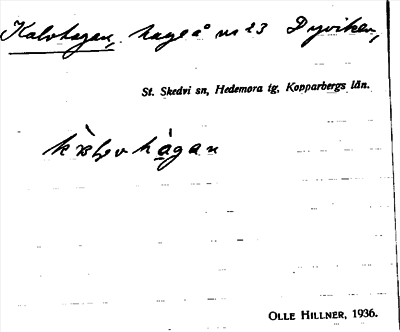 Kalvhagan, hage å nr 23 Dyviken,
St. Skedvi sn, Hedemora tg, Kopparbergs län.
OLLE HILLNER, 1936.